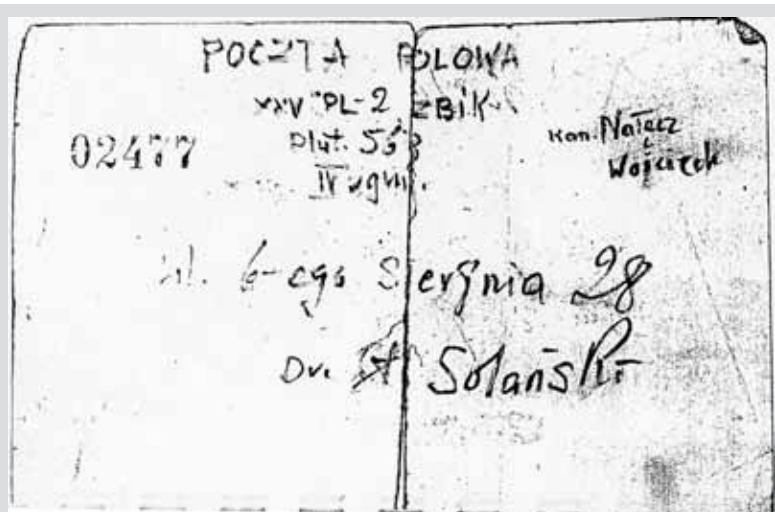 POCZTA POLOWA
XXV PL-2 ŻBIK
02477
plut. 553
kan. Nałęcz
i
Wojciech
IV ugrup.
ul. 6-ego Sierpnia 28
Dr. St Solański